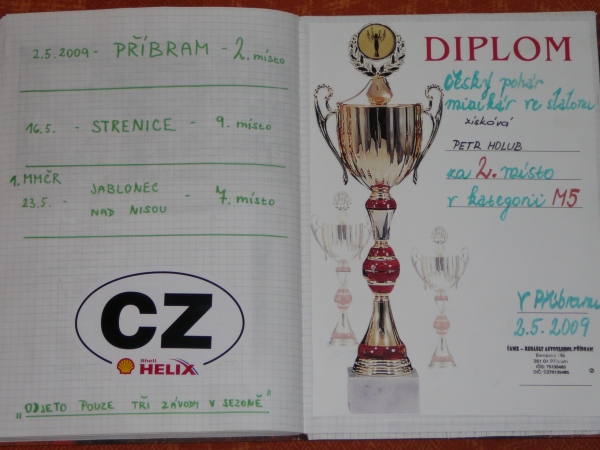 2.5.2009 - PŘÍBRAM - 2. místo
16.5. - STRENICE - 9. místo
1. MMČR
23.5. - JABLONEC NAD NISOU - 7. místo
CZ
Shell
HELIX
"ODJETO POUZE TŘI ZÁVODY V SEZONĚ"
DIPLOM
Český pohár
minikár ve slalomu
získává
PETR HOLUB
za 2. místo
v kategorii M5
V Příbrami
2.5.2009